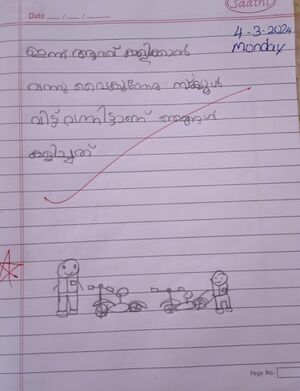 Saathi
Date ___/___/___
4-3-2024
Monday
ഇന്ന് ആരവ് കളിക്കാൻ
വന്നു വൈകുന്നേരം സ്കൂൾ
വിട്ട് വന്നിട്ടാണ് ഞങ്ങൾ
കളിച്ചത്
Page No.